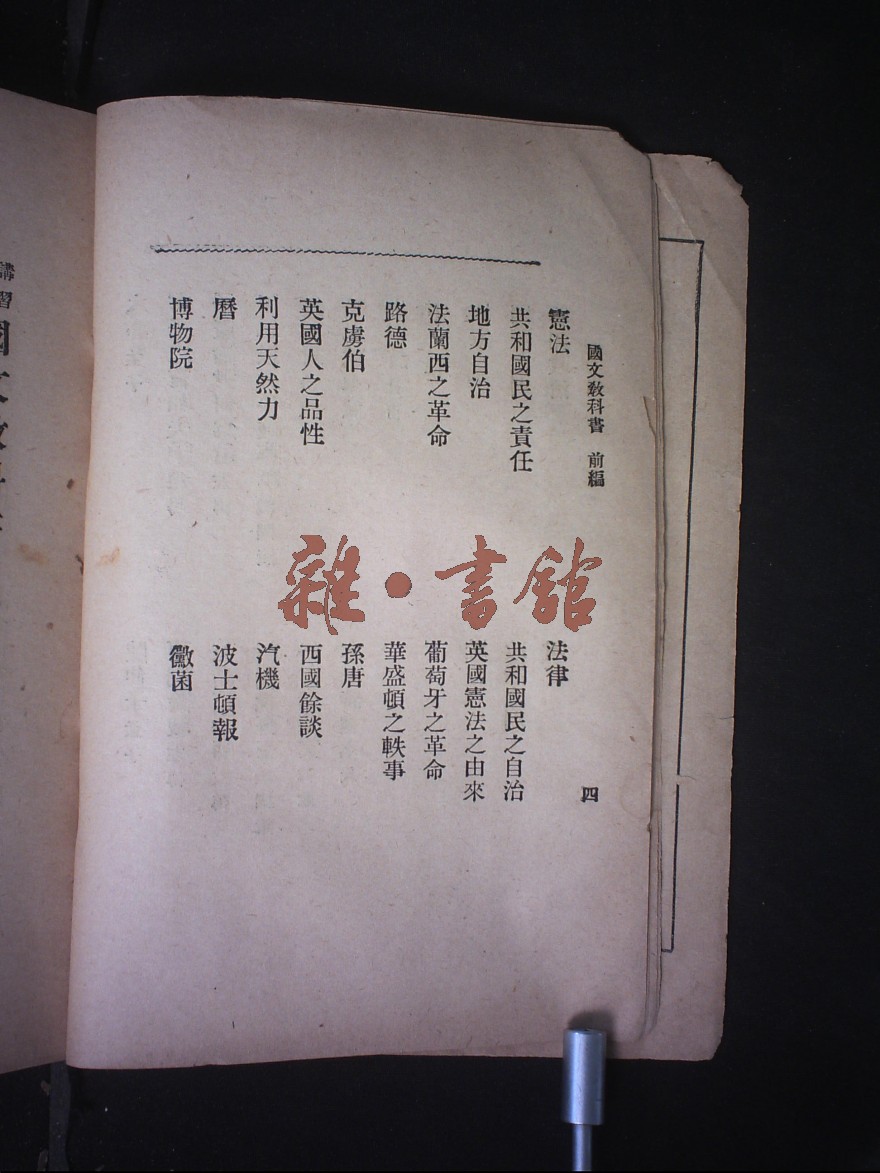 國文教科書 前編 四
憲法 法律
共和國民之責任 共和國民之自治
地方自治 英國憲法之由來
法蘭西之革命 葡萄牙之革命
路德 華盛頓之軼事
克虜伯 孫唐
英國人之品性 西國餘談
利用天然力 汽機
曆 波士頓報
博物院 黴菌
雜·書館
講習